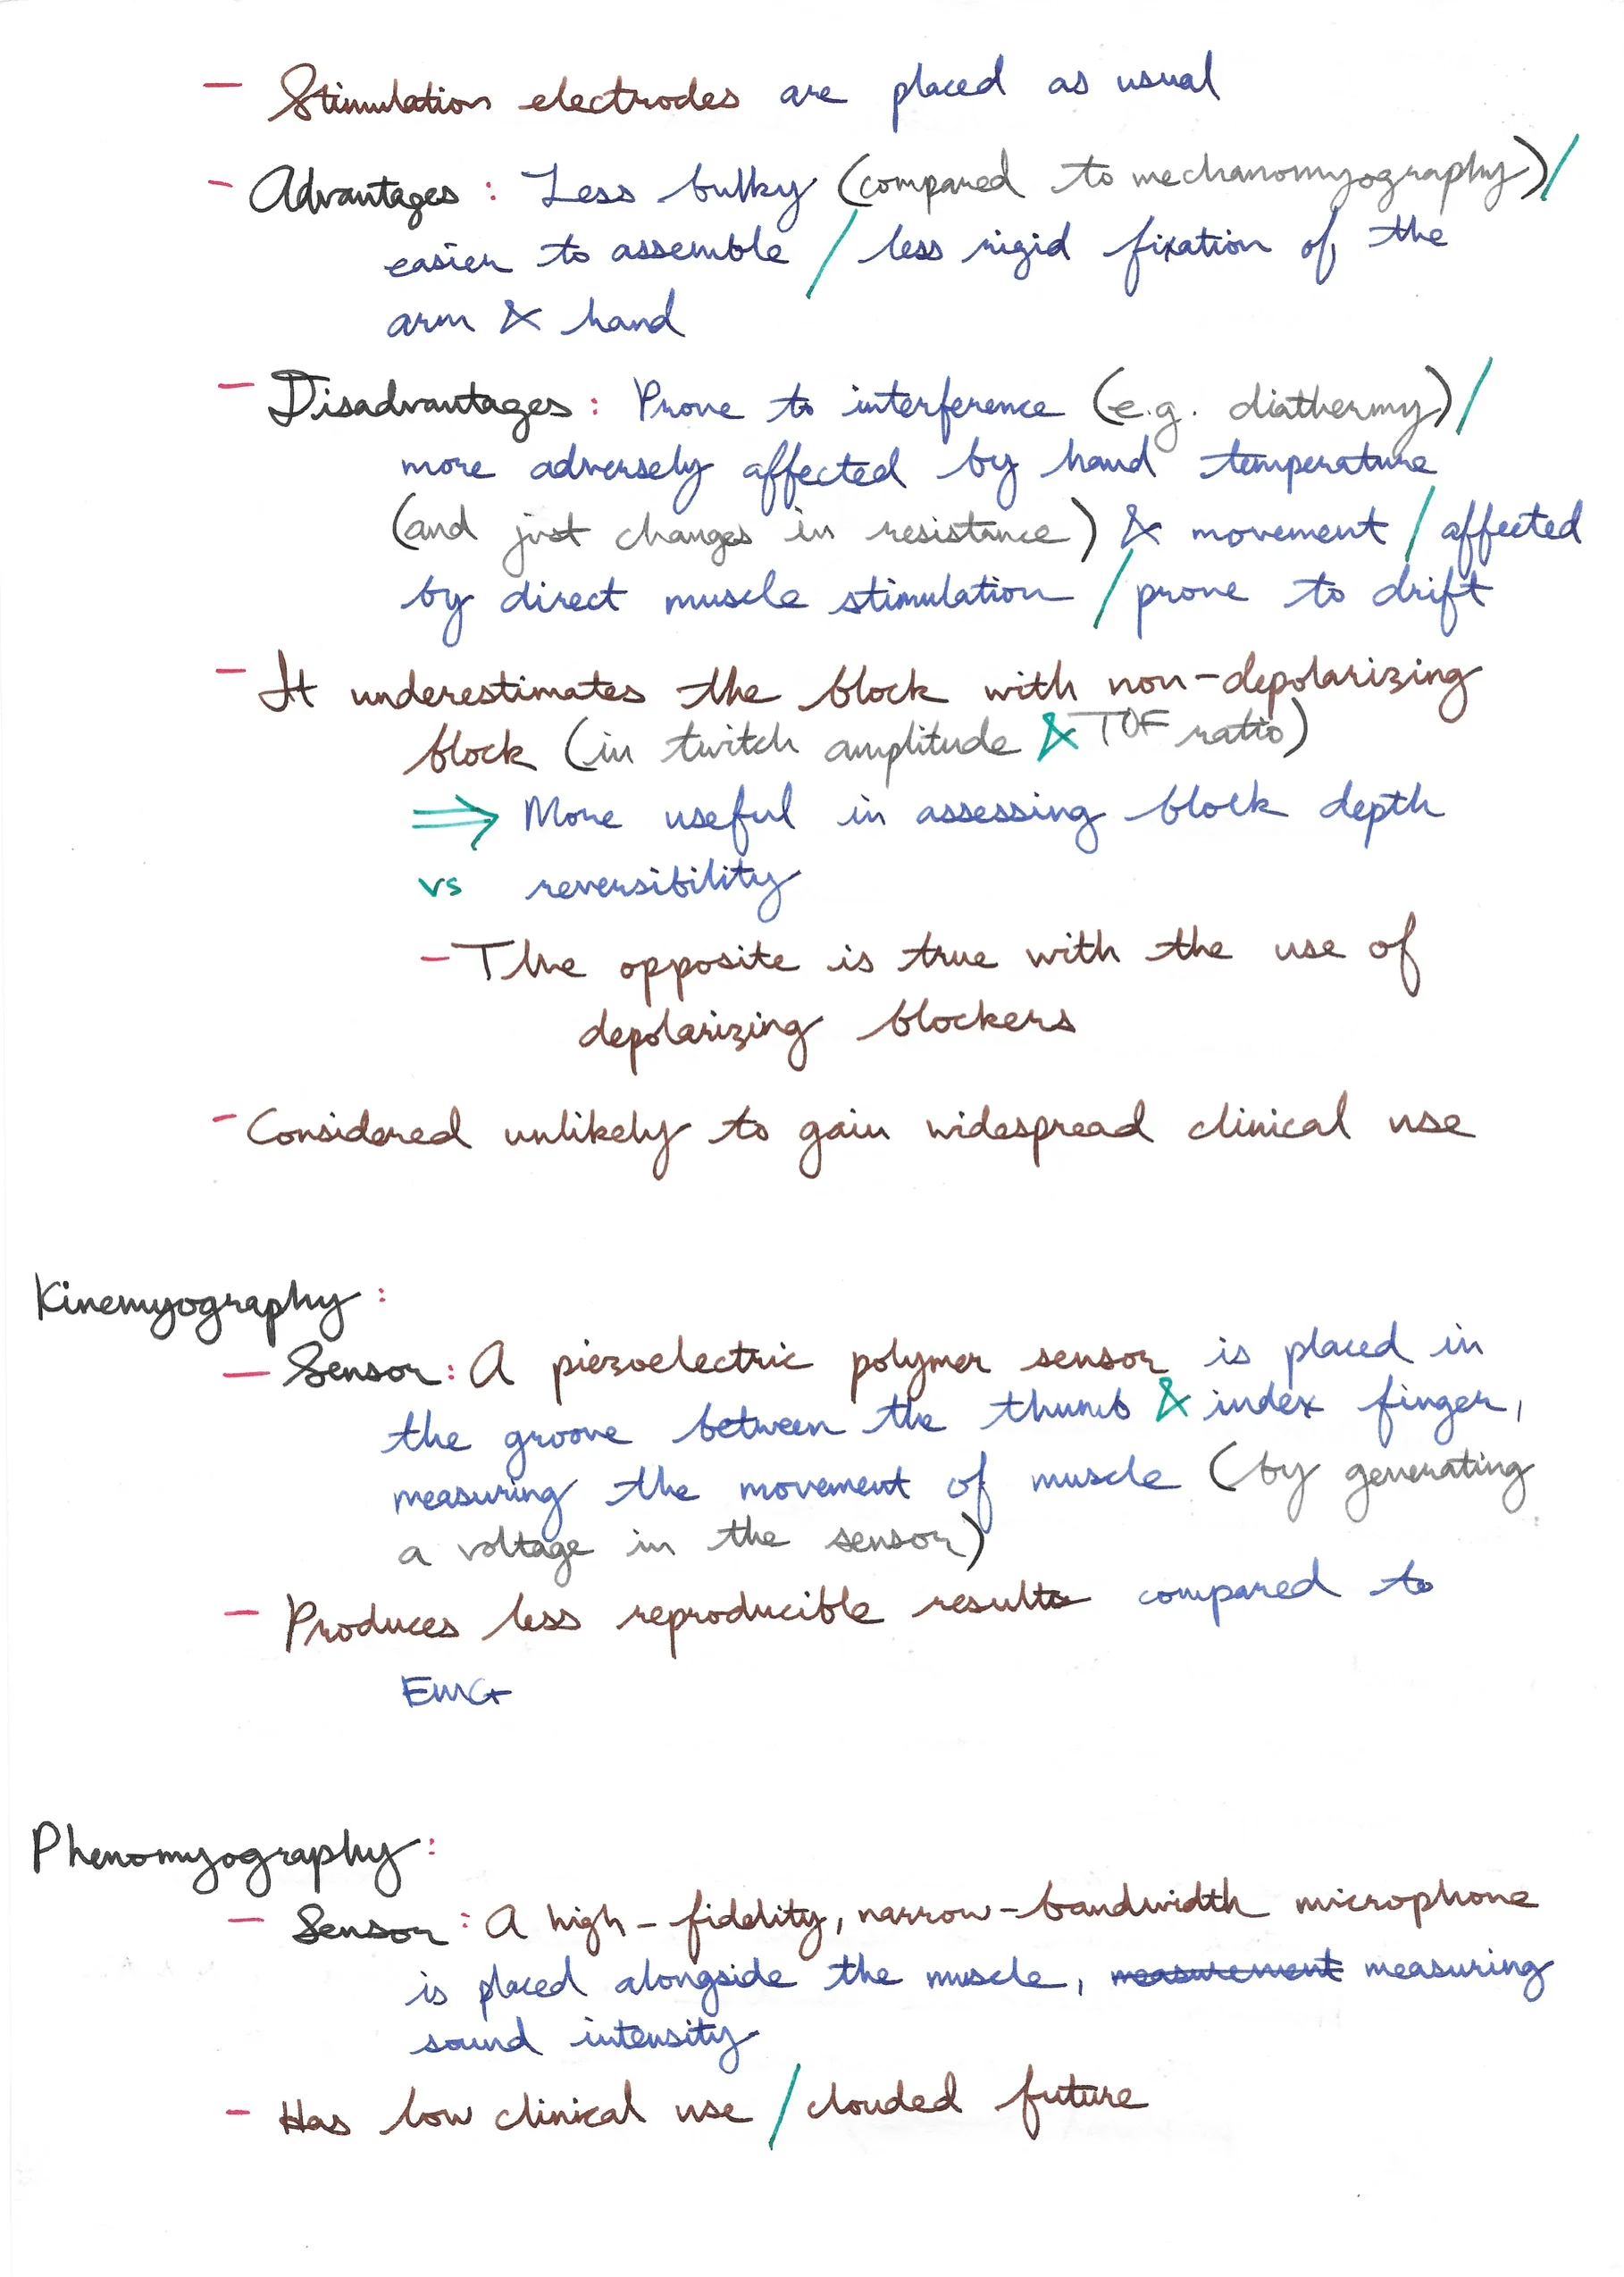 - Stimulation electrodes are placed as usual
- Advantages: Less bulky (compared to mechanomyography)/
easier to assemble / less rigid fixation of the
arm & hand
- Disadvantages: Prone to interference (e.g. diathermy)/
more adversely affected by hand temperature
(and just changes in resistance) & movement / affected
by direct muscle stimulation / prone to drift
- It underestimates the block with non-depolarizing
block (in twitch amplitude & TOF ratio)
⇒ More useful in assessing block depth
vs reversibility
- The opposite is true with the use of
depolarizing blockers
- Considered unlikely to gain widespread clinical use
Kinemyography:
- Sensor: A piezoelectric polymer sensor is placed in
the groove between the thumb & index finger,
measuring the movement of muscle (by generating
a voltage in the sensor)
- Produces less reproducible results compared to
EMG
Phenomyography:
- Sensor: A high-fidelity, narrow-bandwidth microphone
is placed alongside the muscle, measurement measuring
sound intensity
- Has low clinical use / clouded future